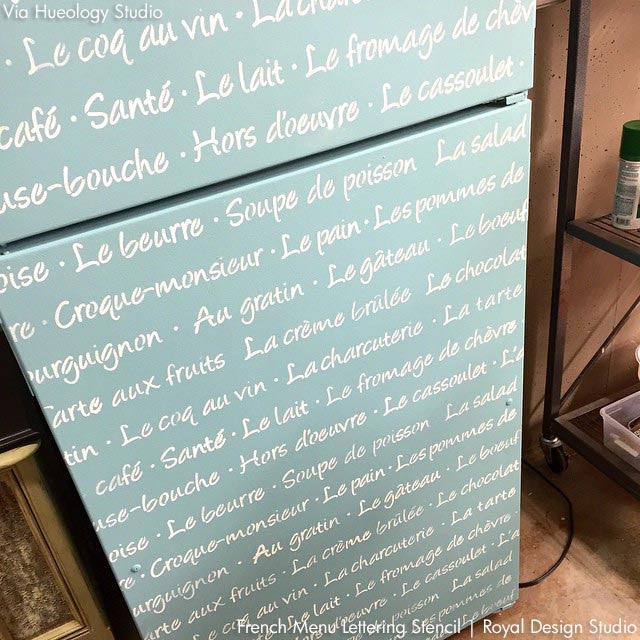 Via Hueology Studio
· Le coq au vin · La
· Le fromage de chèv
café · Santé · Le lait ·
use-bouche · Hors d'oeuvre · Le cassoulet ·
oise · Le beurre · Soupe de poisson La salad
re · Croque-monsieur · Le pain · Les pommes de
urguignon · Au gratin · Le gâteau · Le boeuf
arte aux fruits La crème brûlée Le chocolat
tin · Le coq au vin · La charcuterie · La tarte
café · Santé · Le lait · Le fromage de chèvre
use-bouche · Hors d'oeuvre · Le cassoulet · L'a
oise · Le beurre · Soupe de poisson La salad
re · Croque-monsieur · Le pain · Les pommes de
urguignon · Au gratin · Le gâteau · Le boeuf
arte aux fruits · La crème brûlée · Le chocolat
La charcuterie · La tarte
Le lait · Le fromage de chèvre
Le cassoulet · L'a
La salad
French Menu Lettering Stencil | Royal Design Studio